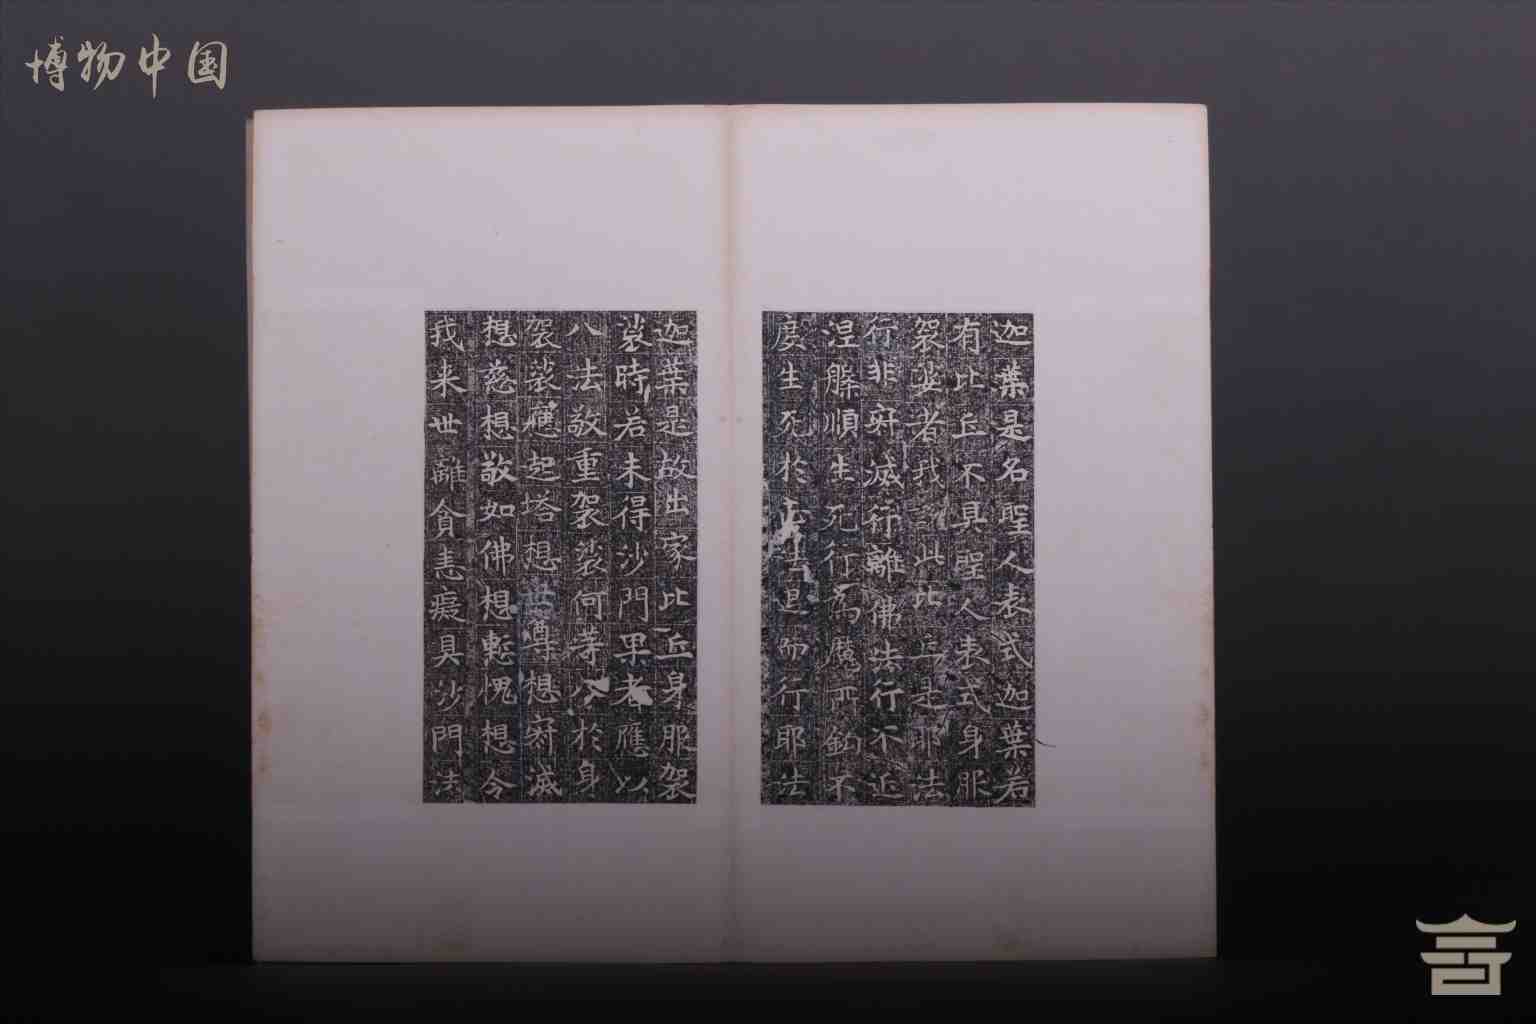 博物中国
迦葉是名聖人表式迦葉若
有比丘不具聖人表式身服
袈裟者我說此比丘走耶法
行非寂滅行離佛法行不近
涅槃順生死行為魔所鈎不
度生死於退而行耶法
迦葉是故出家比丘身服袈
裟時若未得沙門果者應以
八法敬重袈裟何等八於身
袈裟應起塔想世尊想寂滅
想慈想敬如佛想慙愧想令
我来世離貪恚癡具沙門法